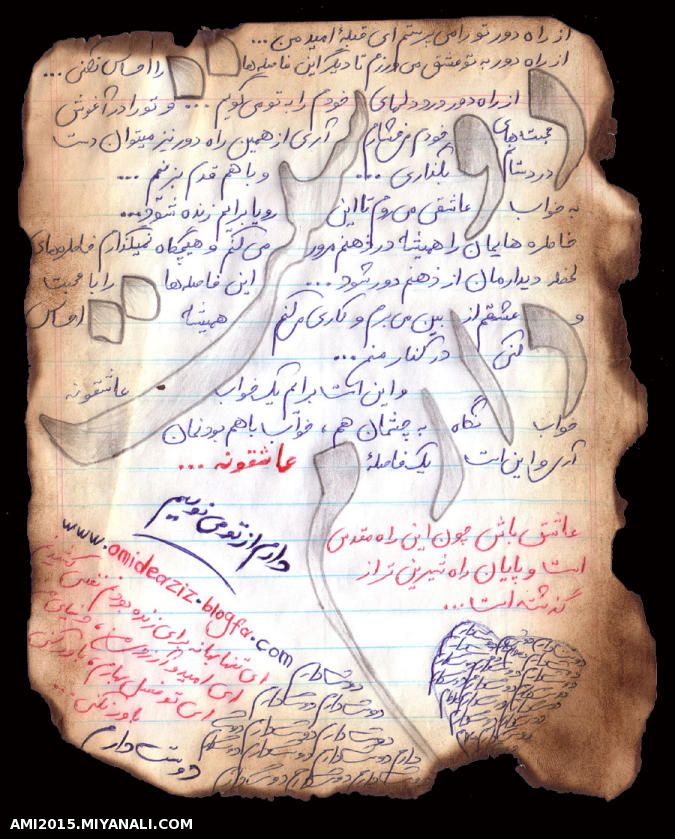 از راه دور تو را می پرستم ای قبلهٔ امید من ...
از راه دور به تو عشق می ورزم تا دیگر این فاصله ها را احساس نکنی ...
از راه دور درد دلهای خودم را به تو می گویم ... و تو را در آغوش
محبت های خودم می فشارم آری از همین راه دور نیز میتوان دست
در دستانم بگذاری ... و با هم قدم بزنیم ...
به خواب عاشقی می روم تا این رویا برایم زنده شود...
خاطره هایمان را همیشه در ذهنم مرور می کنم و هیچگاه نمیگذارم خاطره های
لحظه دیدارمان از ذهنم دور شود ... این فاصله ها را با محبت
و عشقم از بین می برم و کاری می کنم همیشه احساس
کنی در کنار منم ...
و این است برایم یک خواب عاشقونه
خواب نگاه به چشمان هم ، خواب با هم بودنمان
آری و این است یک فاصلهٔ عاشقونه ...
دارم از تو می نویسم
www.omideaziz.blogfa.com
عاشق باش چون این راه مقدس
است و پایان راه شیرین تر از
گذشته است...
ای تنها بهانه برای زنده بودنم نفس کشیدنم
ای امید و آرزوی من ،
ای تو فصل بهارم ، باور کن
باور نکنی ...
دوست دارم
دوست دارم
دوست دارم دوست دارم
دوست دارم دوست دارم
AMI2015.MIYANALI.COM